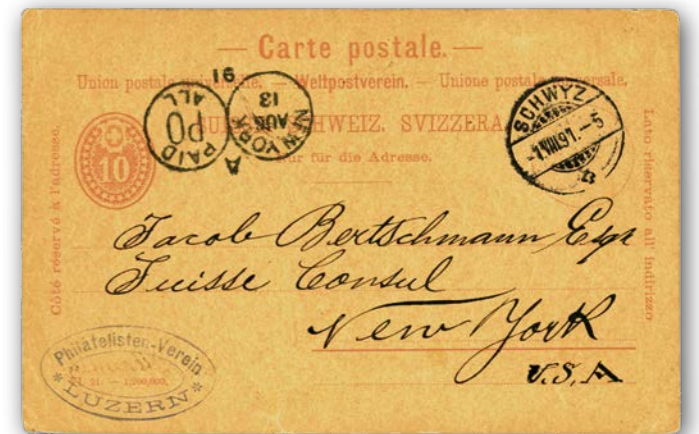 — Carte postale. —
Union postale universelle. — Weltpostverein. — Unione postale universale.
SCHWEIZ. SVIZZERA
Nur für die Adresse.
10
Côté réservé à l'adresse.
Lato riservato all' indirizzo
91
PAID
ALL
NEW YORK
AUG
13
A
SCHWYZ
VIII.91.–5
Jacob Bertschmann Esqr
Suisse Consul
New York
U.S.A
Philatelisten-Verein
LUZERN